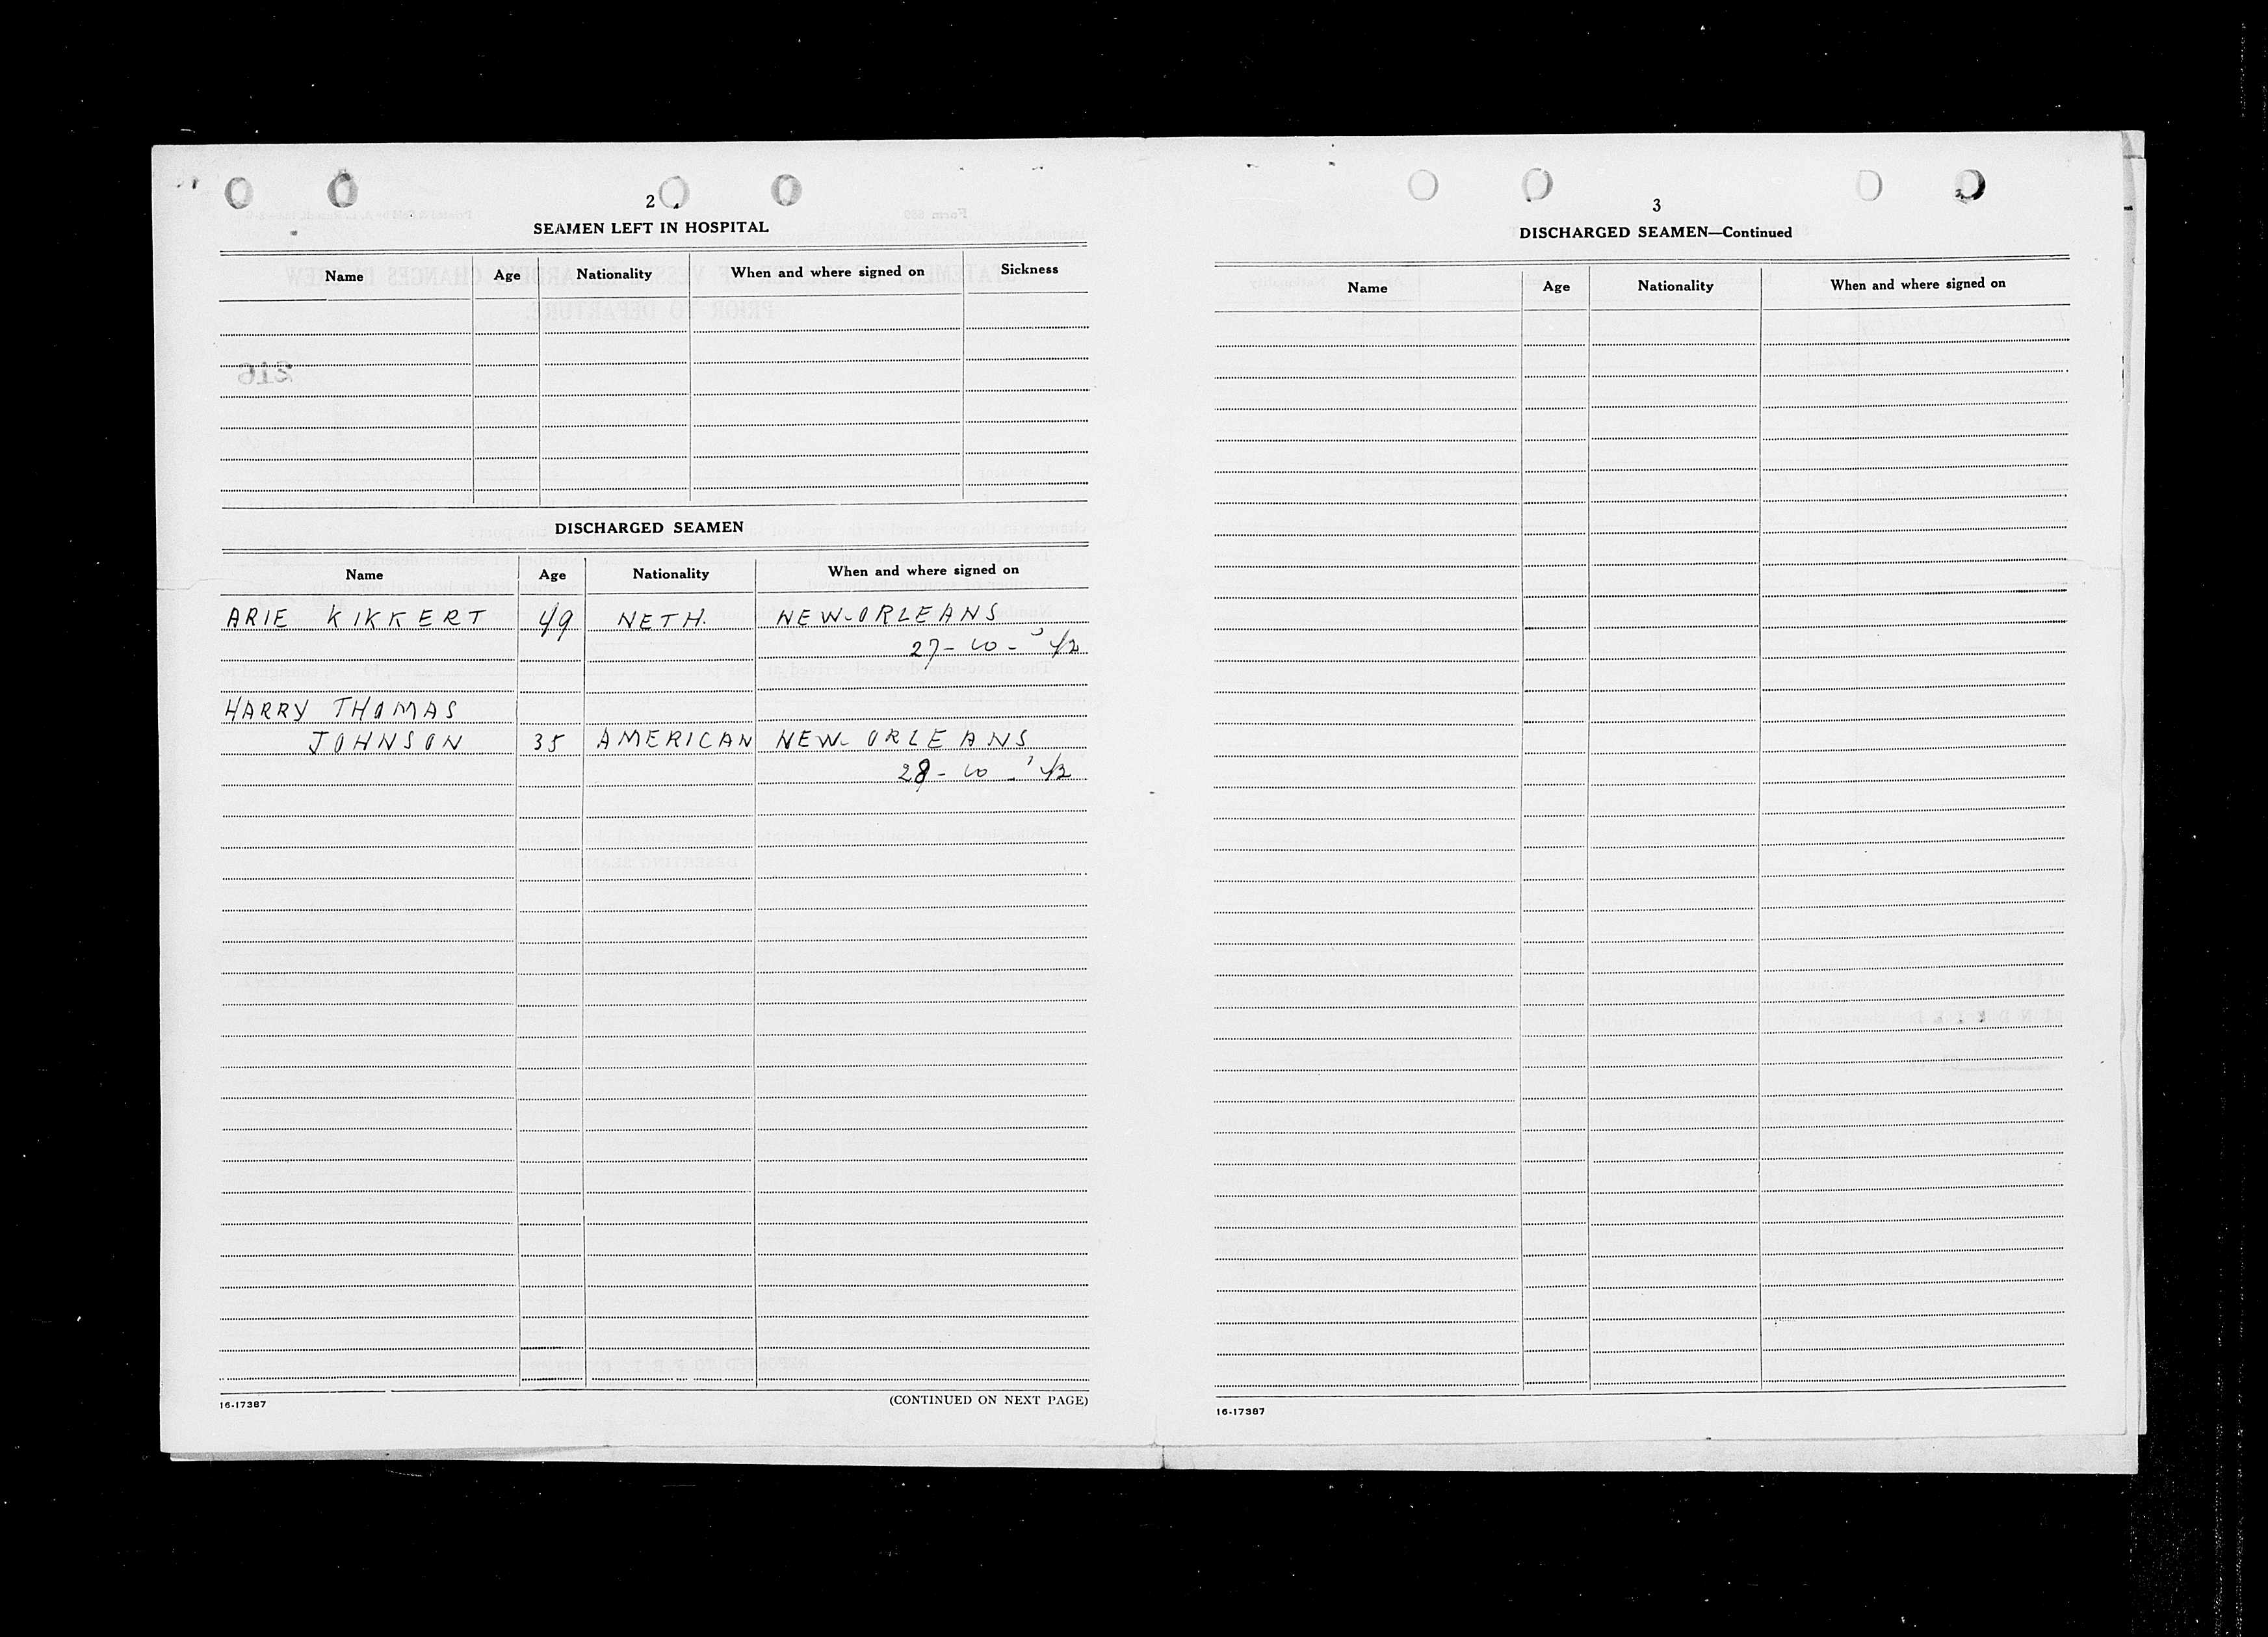 2
SEAMEN LEFT IN HOSPITAL
Name Age Nationality When and where signed on Sickness
DISCHARGED SEAMEN
Name Age Nationality When and where signed on
ARIE KIKKERT 49 NETH. NEW-ORLEANS
27-10-'42
HARRY THOMAS
JOHNSON 35 AMERICAN NEW-ORLEANS
28-10-'42
16-17387 (CONTINUED ON NEXT PAGE)
3
DISCHARGED SEAMEN—Continued
Name Age Nationality When and where signed on
16-17387